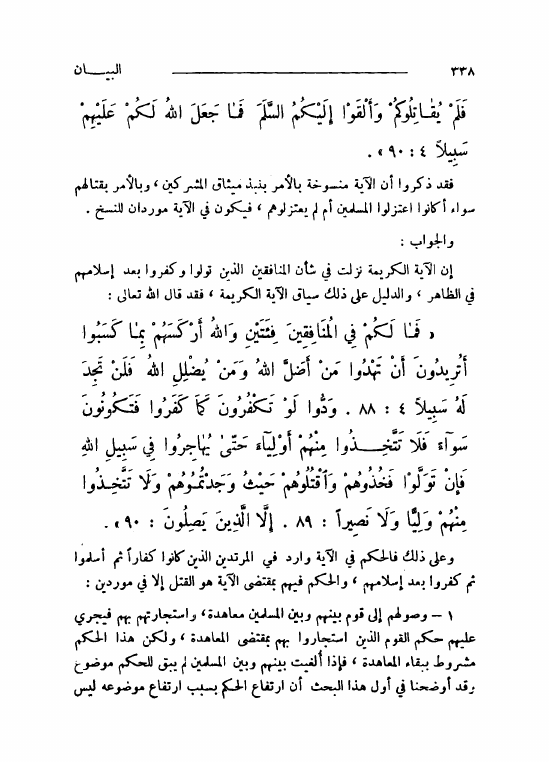 ٣٣٨ البيـــان
فَلَمْ يُقٰاتِلُوكُمْ وَأَلْقَوْا إِلَيْكُمُ السَّلَمَ فَمٰا جَعَلَ اللهُ لَكُمْ عَلَيْهِمْ
سَبِيلاً ٤ : ٩٠ » .
فقد ذكروا أن الآية منسوخة بالأمر بنبذ ميثاق المشركين ، وبالأمر بقتالهم
سواء أكانوا اعتزلوا المسلمين أم لم يعتزلوهم ، فيكون في الآية موردان للنسخ .
والجواب :
إن الآية الكريمة نزلت في شأن المنافقين الذين تولوا وكفروا بعد إسلامهم
في الظاهر ، والدليل على ذلك سياق الآية الكريمة ، فقد قال الله تعالى :
« فَمٰا لَكُمْ فِي الْمُنَافِقِينَ فِئَتَيْنِ وَاللهُ أَرْكَسَهُمْ بِمٰا كَسَبُوا
أَتُرِيدُونَ أَنْ تَهْدُوا مَنْ أَضَلَّ اللهُ وَمَنْ يُضْلِلِ اللهُ فَلَنْ تَجِدَ
لَهُ سَبِيلاً ٤ : ٨٨ . وَدُّوا لَوْ تَكْفُرُونَ كَمٰا كَفَرُوا فَتَكُونُونَ
سَوٰآءً فَلَا تَتَّخِـــذُوا مِنْهُمْ أَوْلِيٰآءَ حَتّىٰ يُهٰاجِرُوا فِي سَبِيلِ اللهِ
فَإِنْ تَوَلَّوْا فَخُذُوهُمْ وَٱقْتُلُوهُمْ حَيْثُ وَجَدْتُمُوهُمْ وَلَا تَتَّخِـذُوا
مِنْهُمْ وَلِيًّا وَلَا نَصِيراً : ٨٩ . إِلَّا الَّذِينَ يَصِلُونَ : ٩٠ » .
وعلى ذلك فالحكم في الآية وارد في المرتدين الذين كانوا كفاراً ثم أسلموا
ثم كفروا بعد إسلامهم ، والحكم فيهم بمقتضى الآية هو القتل إلا في موردين :
١ – وصولهم إلى قوم بينهم وبين المسلمين معاهدة، واستجارتهم بهم فيجري
عليهم حكم القوم الذين استجاروا بهم بمقتضى المعاهدة ، ولكن هذا الحكم
مشروط ببقاء المعاهدة ، فإذا ألغيت بينهم وبين المسلمين لم يبق للحكم موضوع
وقد أوضحنا في أول هذا البحث أن ارتفاع الحكم بسبب ارتفاع موضوعه ليس